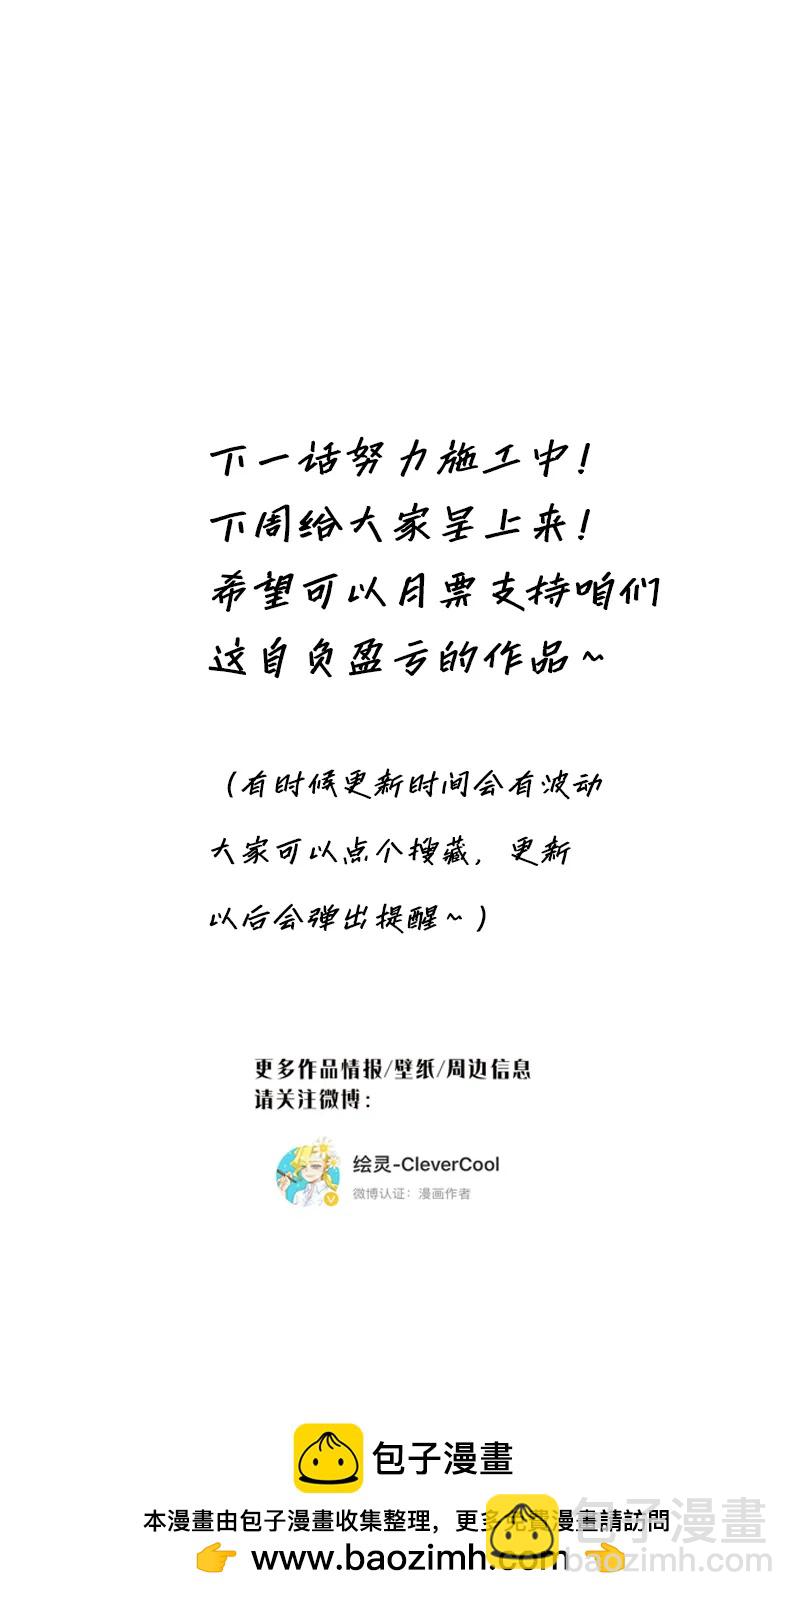 下一话努力施工中！
下周给大家呈上来！
希望可以月票支持咱们
这自负盈亏的作品~
（有时候更新时间会有波动
大家可以点个搜藏，更新
以后会弹出提醒~）
更多作品情报/壁纸/周边信息
请关注微博：
绘灵-CleverCool
微博认证：漫画作者
包子漫畫
本漫畫由包子漫畫收集整理，更多免費漫畫請訪問
www.baozimh.com
包子漫畫
baozimh.com